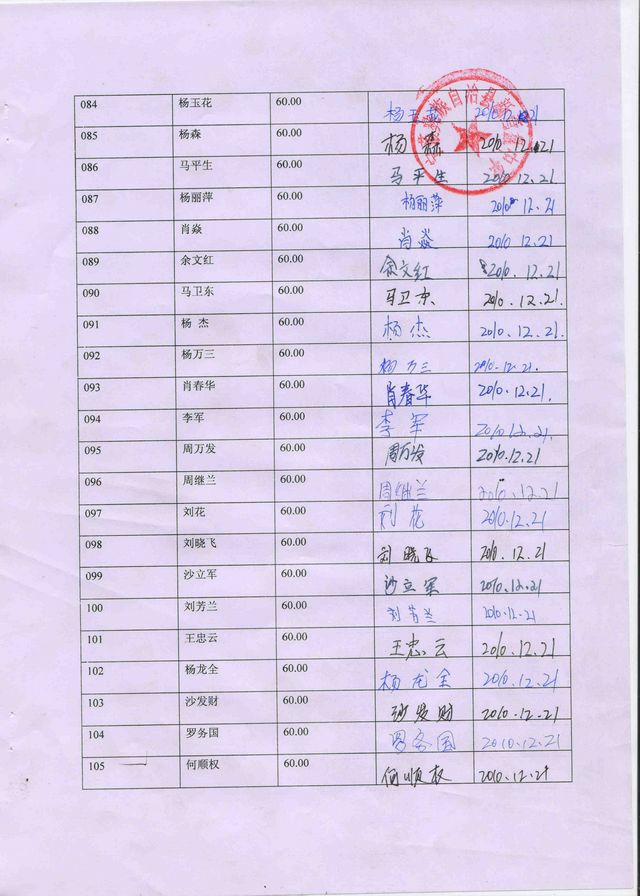 084 杨玉花 60.00 杨玉花 2010.12.21
085 杨森 60.00 杨森 2010.12.21
086 马平生 60.00 马平生 2010.12.21
087 杨丽萍 60.00 杨丽萍 2010.12.21
088 肖焱 60.00 肖焱 2010 12.21
089 余文红 60.00 余文红 2010.12.21
090 马卫东 60.00 马卫东 2010.12.21.
091 杨 杰 60.00 杨杰 2010.12.21.
092 杨万三 60.00 杨万三 2010.12.21.
093 肖春华 60.00 肖春华 2010.12.21.
094 李军 60.00 李军 2010.12.21.
095 周万发 60.00 周万发 2010.12.21
096 周继兰 60.00 周继兰 2010.12.21
097 刘花 60.00 刘花 2010.12.21
098 刘晓飞 60.00 刘晓飞 2010.12.21
099 沙立军 60.00 沙立军 2010.12.21
100 刘芳兰 60.00 刘芳兰 2010.12.21
101 王忠云 60.00 王忠云 2010.12.21
102 杨龙全 60.00 杨龙全 2010.12.21
103 沙发财 60.00 沙发财 2010.12.21
104 罗务国 60.00 罗务国 2010.12.21
105 何顺权 60.00 何顺权 2010.12.21
族自治县